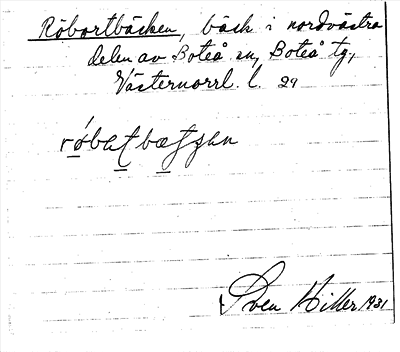 Röbortbäcken, bäck i nordvästra
delen av Boteå sn, Boteå tg,
Västernorrl. l. 29
Sven Hiller 1931